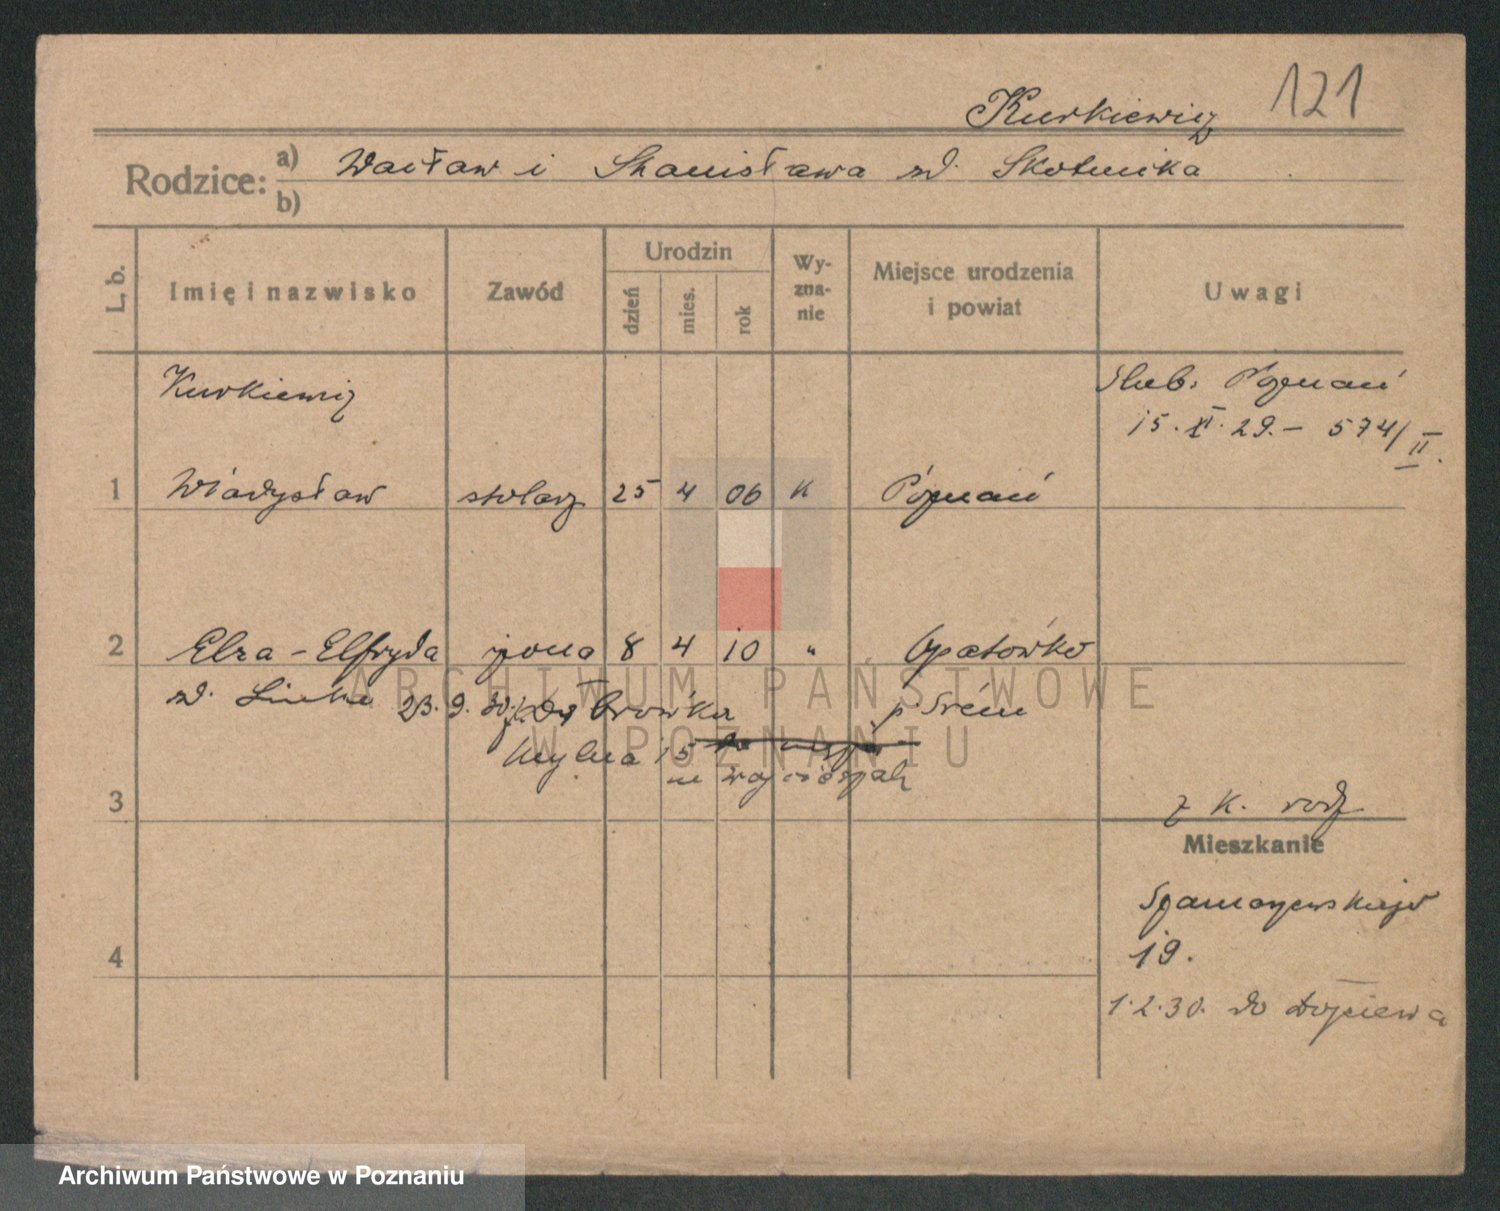 Kurkiewicz 121
Rodzice: a) Wacław i Stanisława zd. Skotnicka
b)
L. b. Imię i nazwisko Zawód Urodzin dzień mies. rok Wyznanie Miejsce urodzenia i powiat Uwagi
Kurkiewicz Ślub. Poznań
15. XI. 29. – 574/II.
1 Władysław stolarz 25 4 06 K Poznań
2 Elza - Elfryda żona 8 4 10 " Opatówko
zd. Linke 23. 9. 30. p. Śrem
Mylna 15
3 z K. rodz
Mieszkanie
Szamarzewskiego
19.
4
1.2.30. do Dopiewa
ARCHIWUM PAŃSTWOWE
W POZNANIU
Archiwum Państwowe w Poznaniu